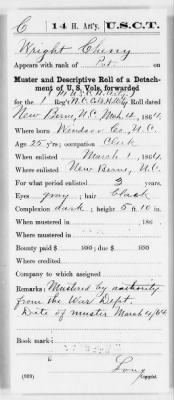 C 14 H. Art'y. U.S.C.T.
Wright Cherry
Appears with rank of Pvt. on
Muster and Descriptive Roll of a Detachment
of U. S. Vols. forwarded
for the 1 Reg't N.C. Hvy Roll dated
New Berne, N.C. Mch. 4, 1864.
Where born Windsor Co., N.C.
Age 25 y'rs; occupation Clerk
When enlisted March 1, 1864.
Where enlisted New Berne, N.C.
For what period enlisted 3 years.
Eyes gray; hair black
Complexion dark; height 5 ft. 10 in.
When mustered in , 186 .
Where mustered in
Bounty paid $ 100; due $ 100
Where credited
Company to which assigned
Remarks: Mustered by authority
from the War Dept.
Date of muster March 4/64
Book mark:
Long
(939) Copyist.